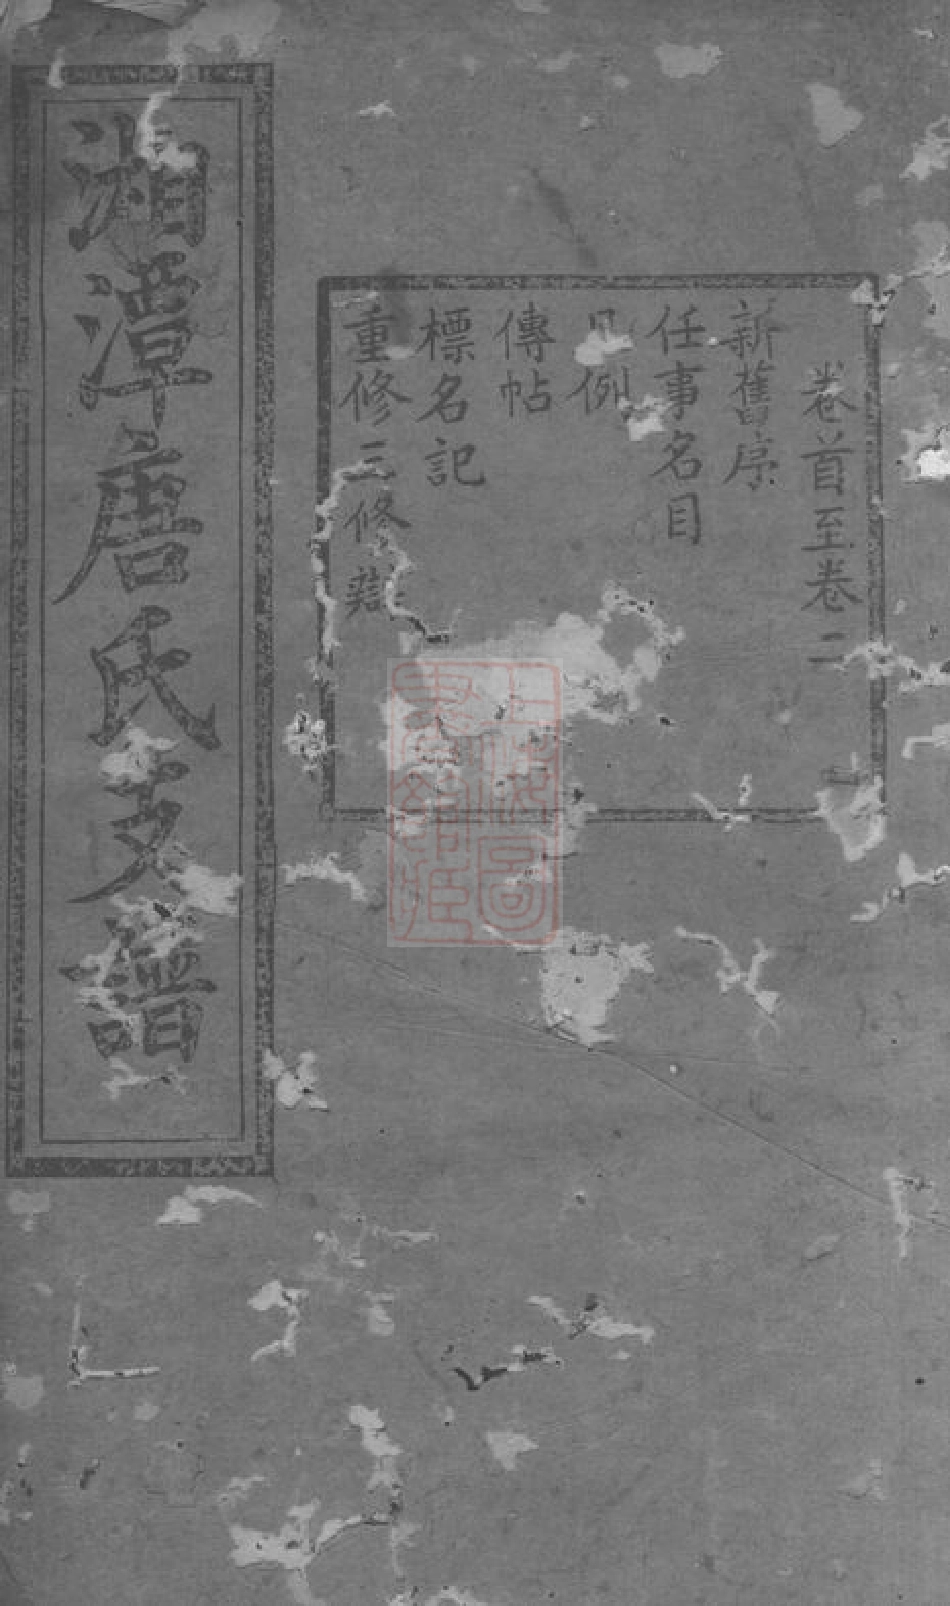 卷首至卷二
新舊序
任事名目
凡例
傳帖
標名記
重修三修
湘潭唐氏支譜
上海圖書館藏